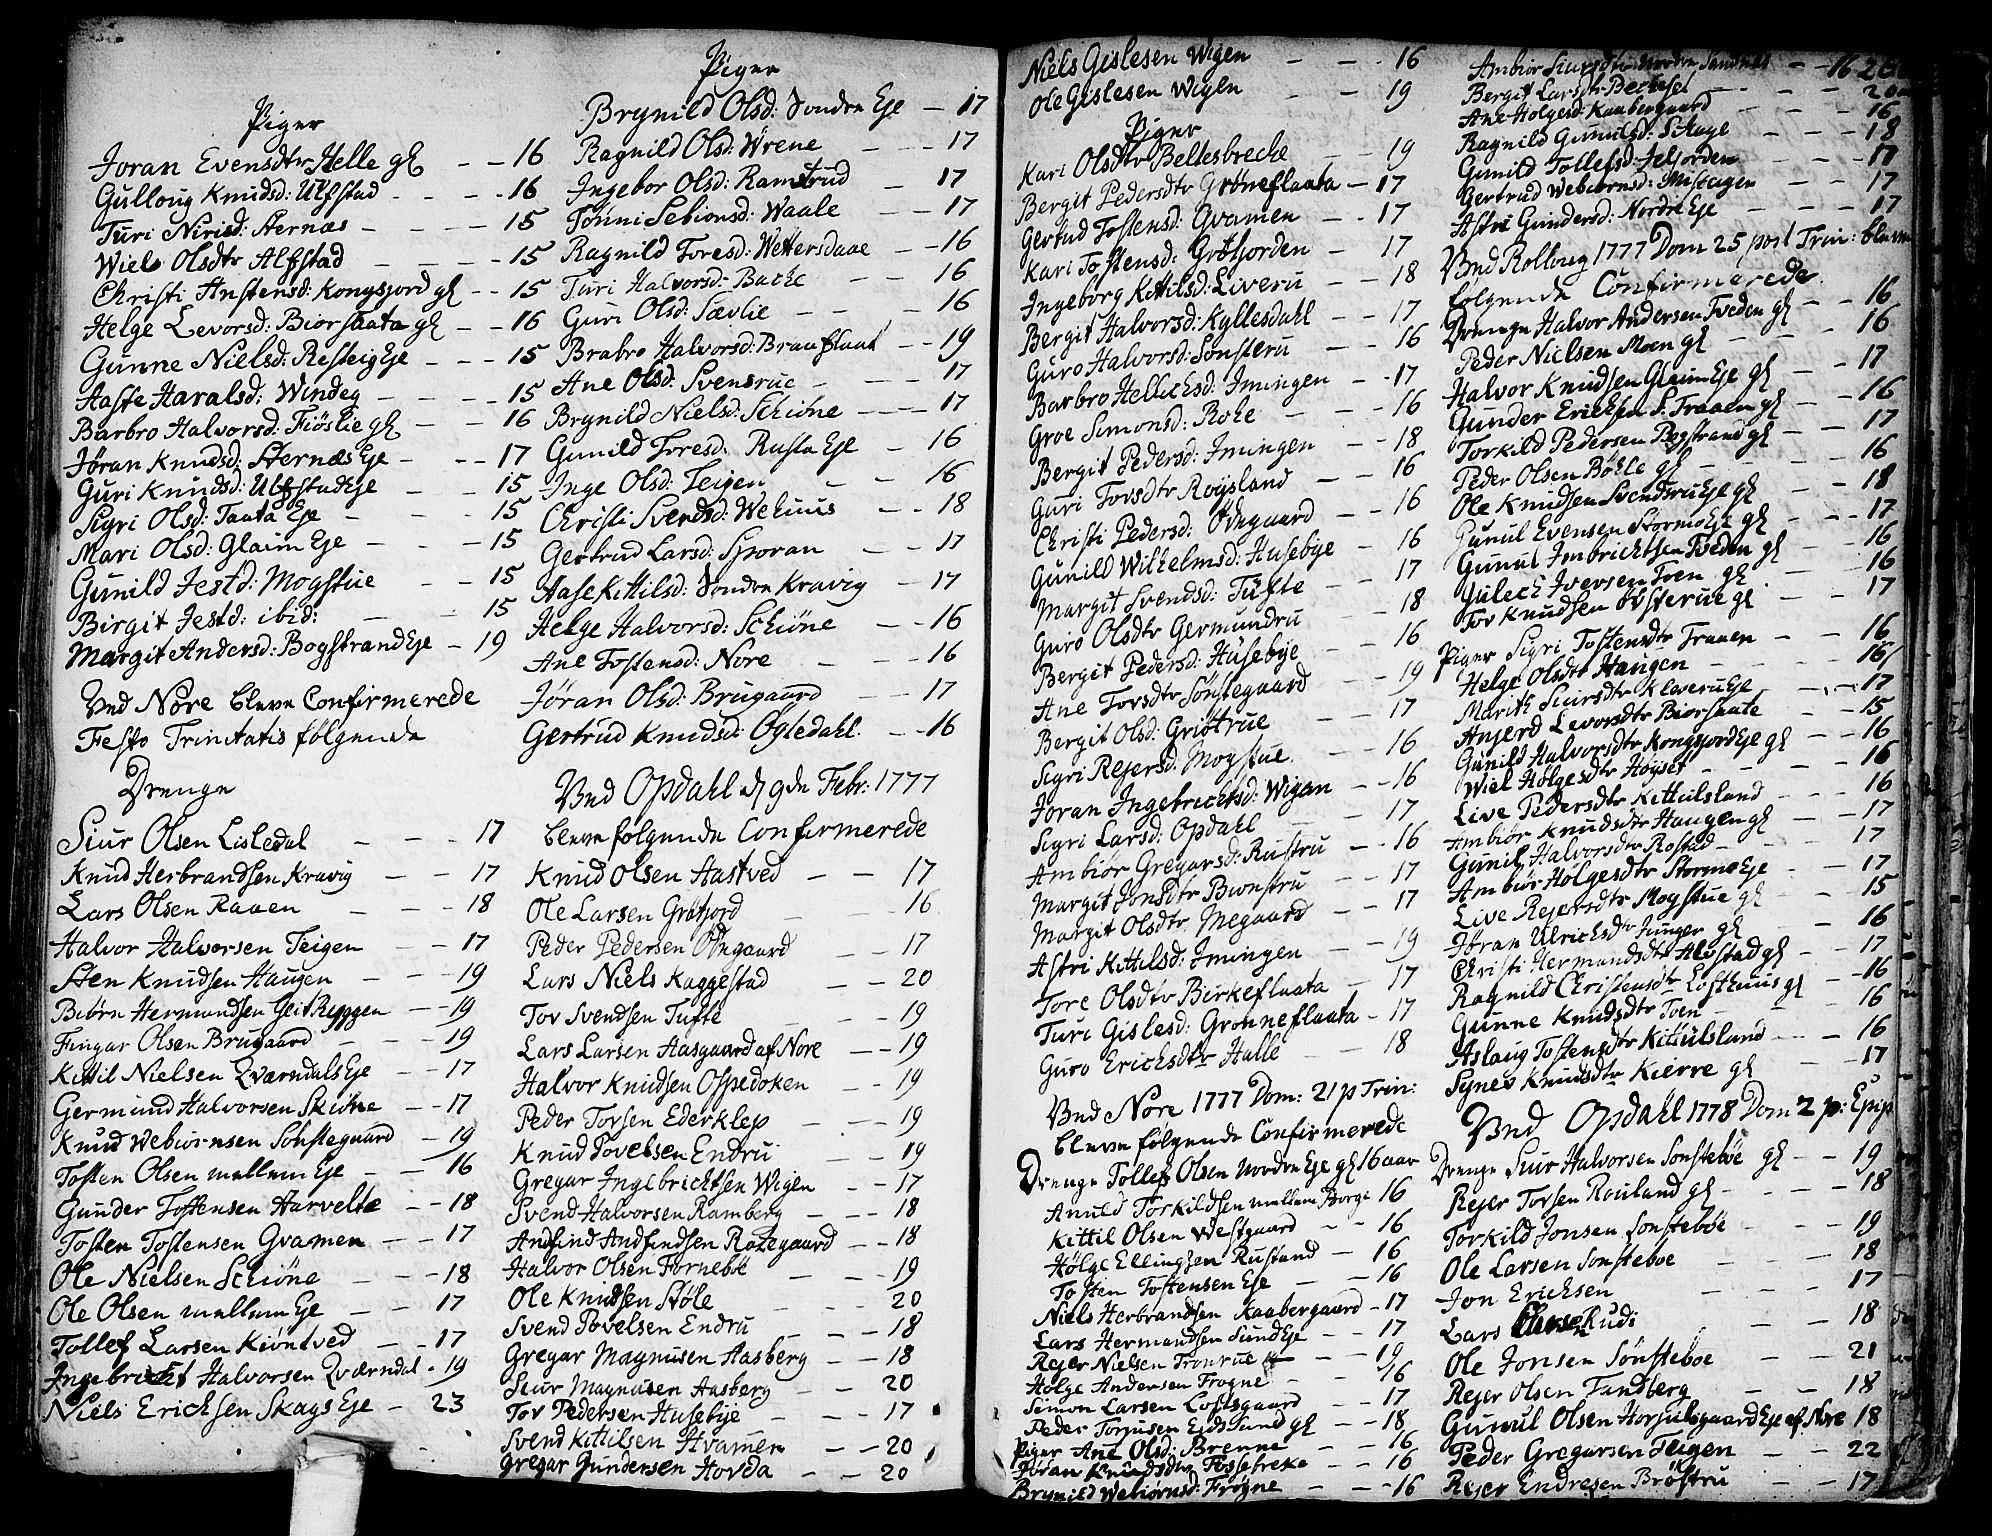 Piger
Joran Evensdtr Helle gℓ - - 16
Gulloug Knudsd: Ulfstad - - - 16
Turi Nirisd: Sternæs - - - 15
Wiels Olsdtr Alfstad - - - 15
Christi Anstensd: Kongsjord gℓ - - 15
Helge Levorsd: Biorsaata gℓ - - 16
Gunne Nielsd: Resteig Eje - - - 15
Aaste Haralsd: Windeg - - - 15
Barbro Halvorsd: Fiöslie gℓ - - 16
Jøran Knudsd: Sternæs Eje - - - 17
Guri Knudsd: Ulfstad Eje - - 15
Sigri Olsd: Taata Eje - - - 15
Mari Olsd: Glaim Eje - - - 15
Gunild Jestd: Mogstue - - 15
Birgit Jestd: ibid: - - 15
Margit Andersd: Bogstrand Eje - 19
Ved Nore bleve Confirmerede
Festo Trinitatis følgende
Drenge
Siur Olsen Lisledal - - 17
Knud Herbrandsen Kravig - - 17
Lars Olsen Raaen - - 18
Halvor Halvorsen Teigen - - 17
Sten Knudsen Haugen - - 19
Biörn Hermandsen Geit Ryggen - - 19
Fingar Olsen Brugaard - - 19
Kittil Nielsen Qværndals Eje - - 17
Germund Halvorsen Skiöne - - 17
Knud Webiörnsen Sönstegaard - 19
Tosten Olsen mellem Eje - - 16
Gunder Tostensen Harvelte - - 18
Tosten Tostensen Gvamen - - 17
Ole Nielsen Schiöne - - - 18
Ole Olsen mellem Eje - - - 17
Tollef Larsen Kiöntved - - 17
Ingebricht Halvorsen Qværndal - 19
Niels Erichsen Skags Eje - 23
Piger
Brynild Olsd: Søndre Eje - 17
Ragnild Olsd: Wrene - - 17
Ingebor Olsd: Ramstrud - 17
Tönni Sebionsd: Waale - - 17
Ragnild Toresd: Wettersdaae - - 16
Turi Halvorsd: Bache - - 16
Guri Olsd: Sævlie - - - 16
Brabro Halvorsd: Brauflaat - - 19
Ane Olsd: Svensrue - - - 17
Brynild Nielsd: Schiöne - - - 17
Gunild Toresd: Rusta Eje - 16
Inge Olsd: Teigen - - 16
Christi Svendsd: Wehuus - - 18
Gertrud Larsd: Sporan - - 17
Aase Kittilsd: Søndre Kravig - 17
Helge Halvorsd: Schiöne - - 16
Ane Tostensd: Nore - - 16
Jøran Olsd: Brugaard - - 17
Gertrud Knudsd: Ögledahl. - - 16
Ved Opdahl d. 9de Febr: 1777
bleve følgende Confirmerede
Knud Olsen Aastved - - 17
Ole Larsen Gröfjord - - 16
Peder Pedersen Ödegaard - - 17
Lars Niels Kaggestad - - 20
Tov Svendsen Tufte - - 19
Lars Larsen Aasgaard af Nore - - 19
Halvor Knudsen Ospedoken - - 19
Peder Torsen Ederklep - - 19
Knud Povelsen Endru - - 19
Gregar Ingebrichtsen Wigen - - 17
Svend Halvorsen Ramberg - - - 18
Andfind Andfindsen Rozegaard - - 18
Halvor Olsen Fornebøe - - 19
Ole Knudsen Støle - - 20
Svend Povelsen Endru - - 18
Gregar Magnusen Aasberg - - 18
Siur Magnusen Aasberg - - 20
Tov Pedersen Husebye - - 17
Svend Kittilsen Hvamen - - 20
Gregar Gundersen Hovda - - 20
Niels Gislesen Wigen - - 16
Ole Gislesen Wigen - - 19
Piger
Kari Olsdtr Beltesbreche - - 19
Bergit Pedersdtr Gröneflaata - 17
Gertud Tostensd: Gvamen - - 17
Kari Tostensd: Gröfjorden - 17
Ingeborg Kittilsd: Liveru - - 18
Bergit Halvorsd: Kyllesdahl - - 17
Guro Halvorsd: Sönsteru - - 16
Barbro Hellichsd: Imingen - - 17
Groe Simonsd: Boke - - 16
Bergit Pedersd: Imingen - - 18
Guri Torsdtr Royjsland - - 16
Christi Pedersd: Ödegaard - - 16
Gunild Wilhelmsd: Husebye - 16
Margit Svendsd: Tufte - - 17
Guro Olsdtr Germundru - - 18
Bergit Pedersd: Husebye - - 16
Ane Torsdtr Sönstegaard - - 19
Bergit Olsd: Gröstrue - - 17
Sigri Rejersd: Mogstue. - - 16
Joran Ingebrichtsd: Wigan - - 16
Sigri Larsd: Opdahl - - 17
Ambiör Gregarsd: Rustru - - 16
Margit Jonsdtr Bionstru - - 17
Margit Olsdtr Megaard - - 17
Astri Kittilsd: Imingen - - 19
Tore Olsdtr Birkeflaata - 17
Turi Gislesd: Grönneflaata - 17
Guro Erichsdtr Halle - - 18
Ved Nore 1777 Dom: 21 p Trin:
bleve følgende Confirmerede
Drenge Tollef Olsen Nordre Eje gℓ 16 aar
Anuld Torkildsen mellem Borge 16
Kittil Olsen Westgaard - - 16
Hølge Ellingsen Rustand - 16
Tosten Tostensen Eje - - 16
Niels Herbrandsen Kaabergaard - 17
Lars Hermandsen Sund Eje - - 17
Rejer Nielsen Tronrue - - 19
Hølge Andersen Frogne - - 16
Simon Larsen Loftsgaard - - 17
Peder Torjusen Eidssund gℓ - - 18
Piger Ane Olsd: Brenne - - 16
Jøran Knudsdtr Fossebreke - - 16
Brynild Webiörnsd: Frögne - - 16
Ambior Siursdtr Nordre Sandnes - - 16
Bergit Larsdtr Bechesel - - - 20
Ane Holgesd: Kaabergaard - - 16
Ragnild Gunulsd: Schage - - - 18
Gunild Tollefsd: Jeljorden - - - 17
Gertrud Webiörnsd: Misteigen - - 17
Astri Gundersd: Nordre Eje - - 17
Ved Rolloug 1777 Dom 25 post Trin: bleve
følgende Confirmerede.
Drenge Halvor Andersen Tveden gℓ - - 16
Peder Nielsen Moen gℓ - - 16
Halvor Knudsen Glaim Eje gℓ - - 17
Gunder Erichsen S. Traaen gℓ - - 16
Torkild Pedersen Bogstrand gℓ - - 17
Peder Olsen Böhle gℓ - - 16
Ole Knudsen Svendsru Eje gℓ - - 18
Gunul Evensen Stormo Eje gℓ - - - 17
Gunul Imbrichtsen Tveden gℓ - - 16
Gulech Iversen Toen gℓ - - 16
Tor Knudsen Övsterue gℓ - - 17
Piger Sigri Tostensdtr Traaen - - 16
Helge Olsdtr Haugen - - - 16
Marith Siursdtr Klaveru Eje - - 17
Anjerd Levorsdtr Biorsaate - - 15
Gunild Halvorsdtr Kongsjord Eje gℓ - 16
Wiel Hølgesdtr Høyset - - - 16
Live Pedersdtr Kittulsland - - 16
Ambiör Knudsdtr Haugen gℓ - - 17
Gunil Halvorsdtr Rostad - - - 17
Ambiör Holgesdtr Stormo Eje - - 17
Live Rejersdtr Mogstue gℓ - - 15
Jøran Ulrichsdtr Junger gℓ - - 16
Christi Hermandsdtr Alvstad gℓ - 17
Ragnild Christensdtr Losthuus gℓ - 16
Gunne Knudsdtr Toen - - - 16
Aslaug Tostensdtr Kittulsland - - - 16
Synev Knudsdtr Kierre gℓ - - 17
Ved Opdahl 1778 Dom 2 p: Epip
Drenge Siur Halvorsen Sonstebøe gℓ - - 19
Rejer Torsen Rouland gℓ - - - 18
Torkild Jonsen Sonstebøe - - - 19
Ole Larsen Sonsteboe - - 18
Jon Erichsen - - - 17
Lars Rudi - - 18
Ole Jonsen Sönsteboe - - 21
Rejer Olsen Tandberg - - 18
Gunul Olsen Horjulsgaard Eje af Nore 18
Peder Gregarsen Teigen - - 22
Rejer Endresen Bröstru - - 17